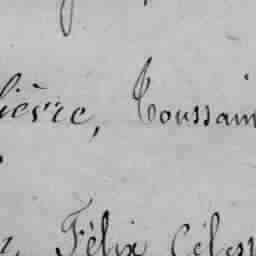 ièvre, Toussain
Félix Céles